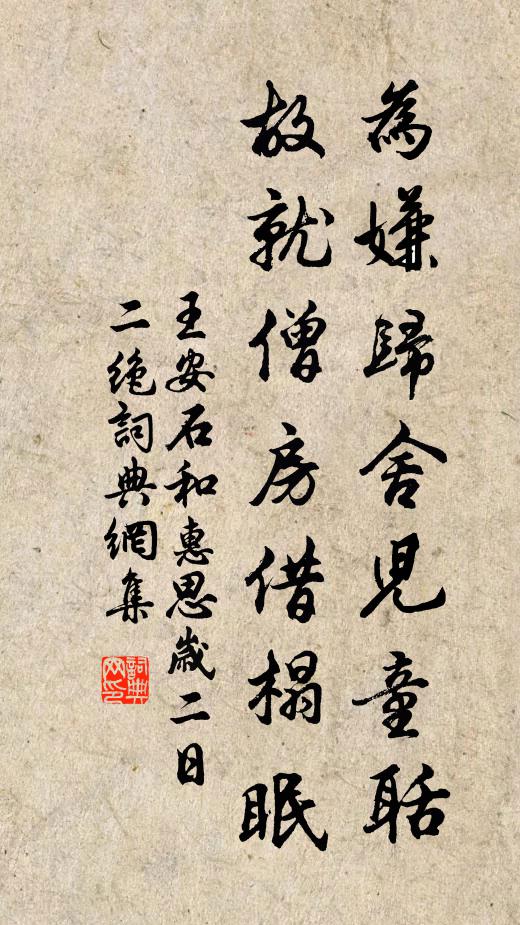 為嫌歸舍兒童聒
故就僧房借榻眠
王安石和惠思歲二日
二絕詞典網集
詞典网印